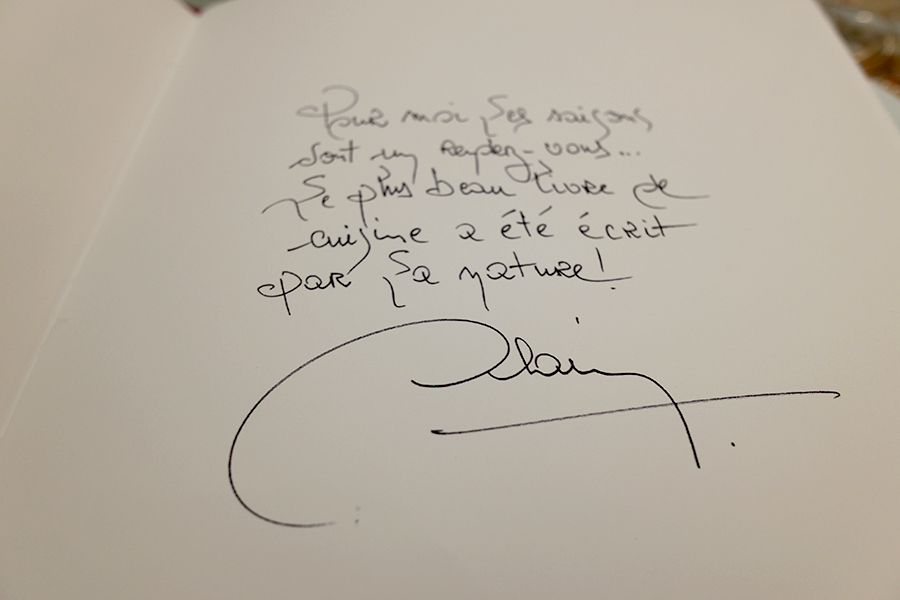 Pour moi les saisons
sont un rendez-vous...
Le plus beau livre de
cuisine a été écrit
par la nature!
Alain